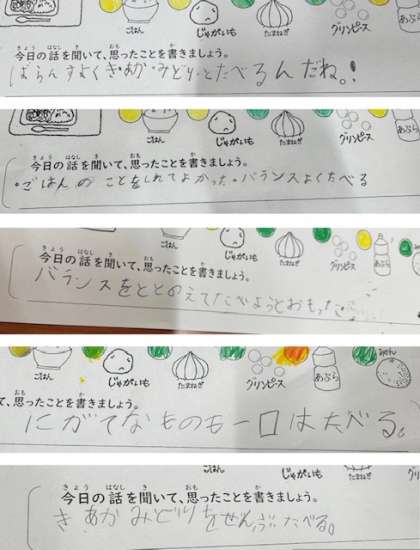 ごはん じゃがいも たまねぎ グリンピース
今日の話を聞いて、思ったことを書きましょう。
ばらんすよくきあかみどりとたべるんだね。!
ごはん じゃがいも たまねぎ グリンピース
今日の話を聞いて、思ったことを書きましょう。
・ごはんのことをしれてよかった・バランスよくたべる
ごはん じゃがいも たまねぎ グリンピース あぶら
今日の話を聞いて、思ったことを書きましょう。
バランスをととのえてたべようとおもった
ごはん じゃがいも たまねぎ グリンピース あぶら みかん
て、思ったことを書きましょう。
にがてなものも一口はたべる。
ごはん じゃがいも たまねぎ
今日の話を聞いて、思ったことを書きましょう。
き あか みどりをぜんぶたべる。